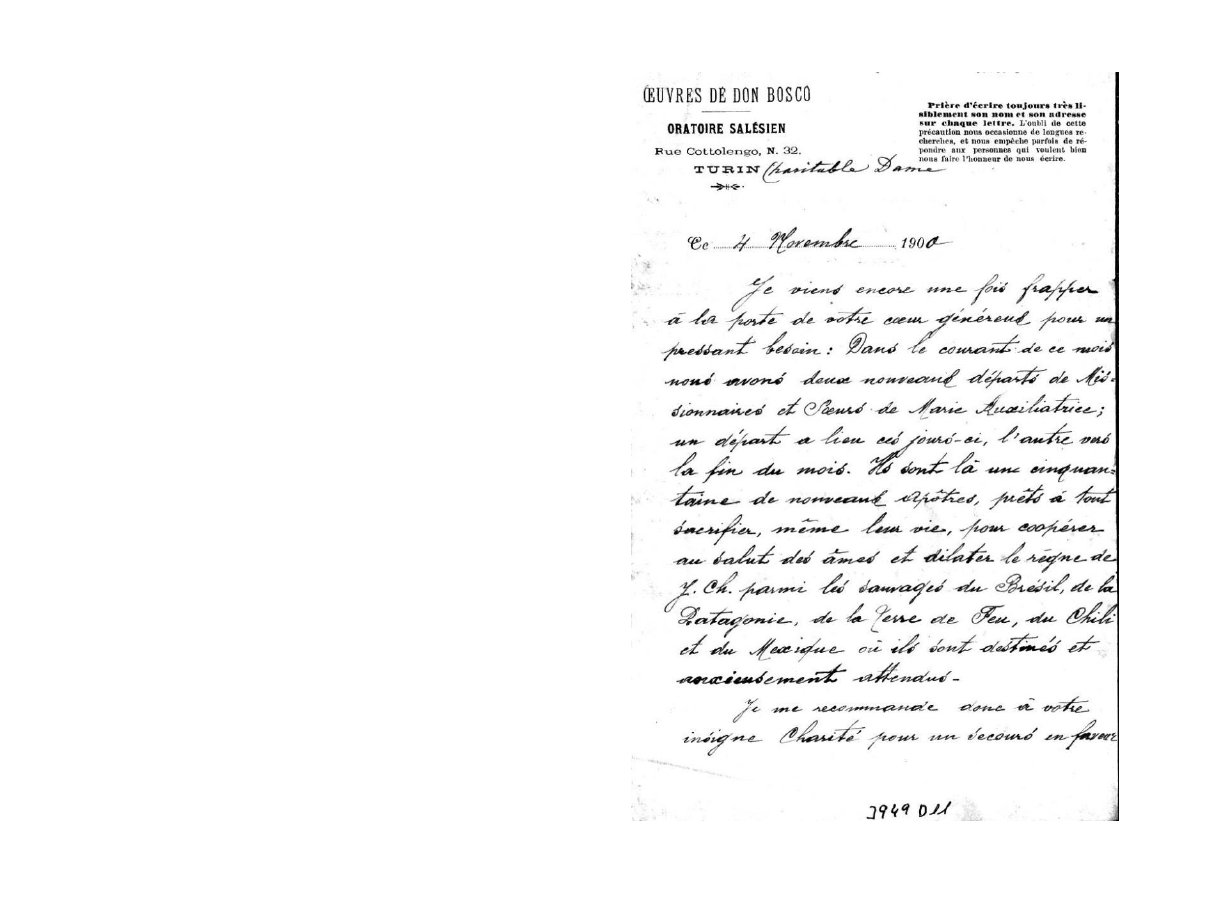 ŒUVRES DE DON BOSCO
ORATOIRE SALÉSIEN
Rue Cottolengo, N. 32.
TURIN
Prière d'écrire toujours très li-
siblement son nom et son adresse
sur chaque lettre. L'oubli de cette
précaution nous occasionne de longues re-
cherches, et nous empêche parfois de ré-
pondre aux personnes qui veulent bien
nous faire l'honneur de nous écrire.
Charitable Dame
Ce 4 Novembre 1900
Je viens encore une fois frapper
à la porte de votre cœur généreux pour un
pressant besoin : Dans le courant de ce mois
nous avons deux nouveaux départs de Mis-
sionnaires et Sœurs de Marie Auxiliatrice ;
un départ a lieu ces jours-ci, l'autre vers
la fin du mois. Ils sont là une cinquan-
taine de nouveaux Apôtres, prêts à tout
sacrifier, même leur vie, pour coopérer
au salut des âmes et dilater le règne de
J. Ch. parmi les sauvages du Brésil, de la
Patagonie, de la Terre de Feu, du Chili
et du Mexique où ils sont destinés et
anxieusement attendus -
Je me recommande donc à votre
insigne Charité pour un secours en faveur
3949 D11